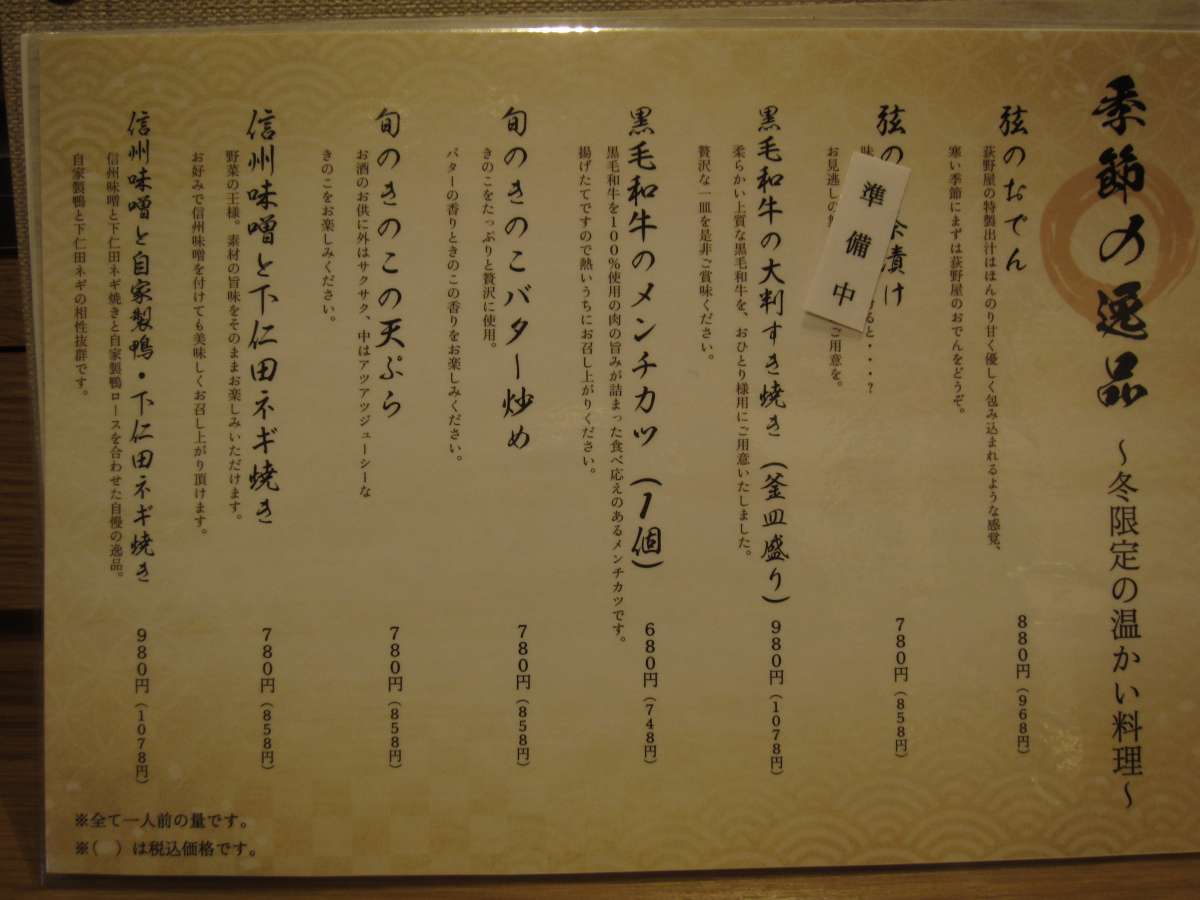 季節の逸品 ～冬限定の温かい料理～
弦のおでん 880円（968円）
荻野屋の特製出汁はほんのり甘く優しく包み込まれるような感覚、
寒い季節にまずは荻野屋のおでんをどうぞ。
弦の 茶漬け 780円（858円）
味 ると・・・？
お見逃しの ご用意を。
準備中
黒毛和牛の大判すき焼き（釜皿盛り） 980円（1078円）
柔らかい上質な黒毛和牛を、おひとり様用にご用意いたしました。
贅沢な一皿を是非ご賞味ください。
黒毛和牛のメンチカツ（1個） 680円（748円）
黒毛和牛を100％使用の肉の旨みが詰まった食べ応えのあるメンチカツです。
揚げたてですので熱いうちにお召し上がりください。
旬のきのこバター炒め 780円（858円）
きのこをたっぷりと贅沢に使用。
バターの香りときのこの香りをお楽しみください。
旬のきのこの天ぷら 780円（858円）
お酒のお供に外はサクサク、中はアツアツジューシーな
きのこをお楽しみください。
信州味噌と下仁田ネギ焼き 780円（858円）
野菜の王様。素材の旨味をそのままお楽しみいただけます。
お好みで信州味噌を付けても美味しくお召し上がり頂けます。
信州味噌と自家製鴨・下仁田ネギ焼き 980円（1078円）
信州味噌と下仁田ネギ焼きと自家製鴨ロースを合わせた自慢の逸品。
自家製鴨と下仁田ネギの相性抜群です。
※全て一人前の量です。
※（ ）は税込価格です。